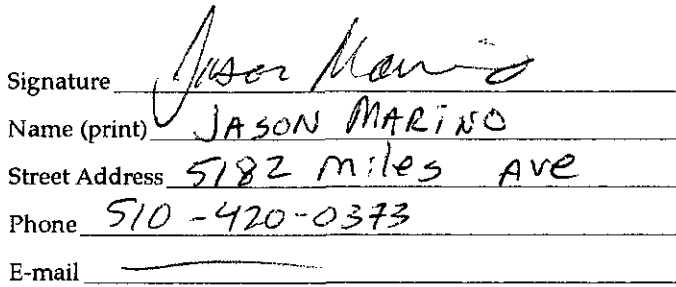 Signature Jason Marino
Name (print) JASON MARiNO
Street Address 5182 miles Ave
Phone 510-420-0373
E-mail